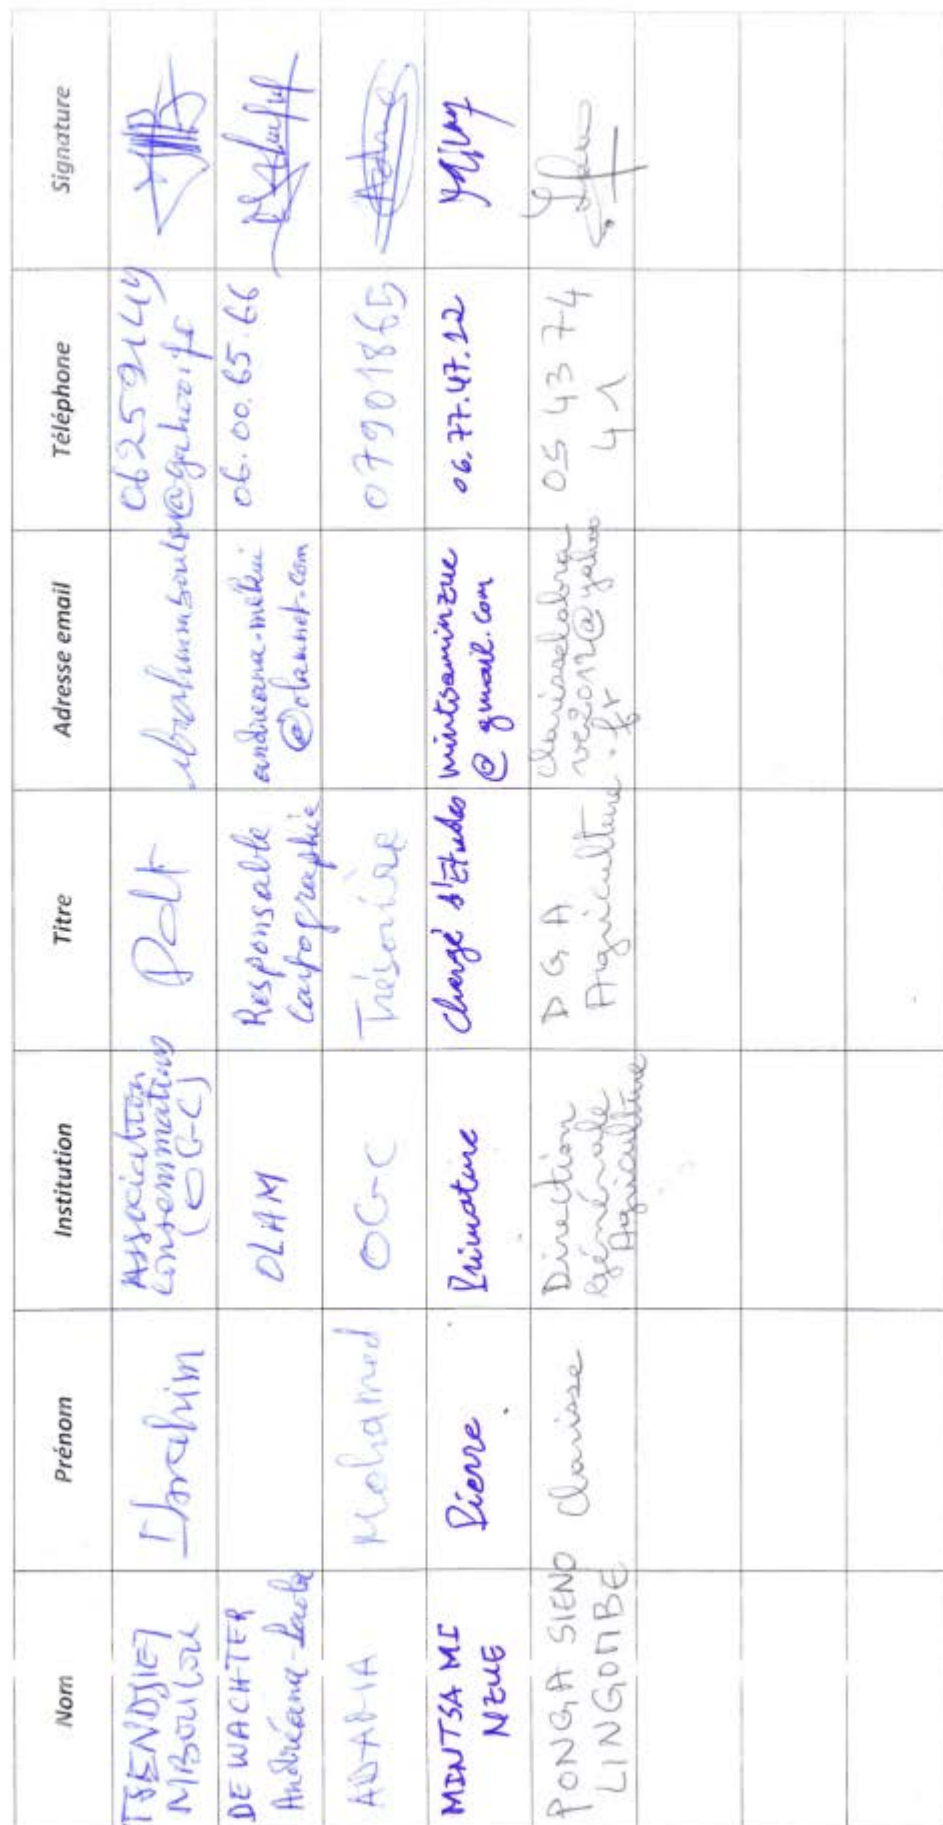 Nom Prénom Institution Titre Adresse email Téléphone Signature
TSENDJIET MBOULOU Ibrahim Association consommateurs (OGC) Pdt 06259449
DE WACHTER Andréana-Paola OLAM Responsable Cartographie andreana-mekui @olamnet.com 06.00.65.66
ADADIA Mohamed OGC Trésorière 07901865
MINTSA MI NZUE Pierre Primature Chargé d'Etudes mintsaminzue @ gmail.com 06.77.47.22
PONGA SIENO LINGOMBE Clarisse Direction Générale Agriculture D G A Agriculture clarisselabra ve2012@yahoo .fr 05 43 74 41